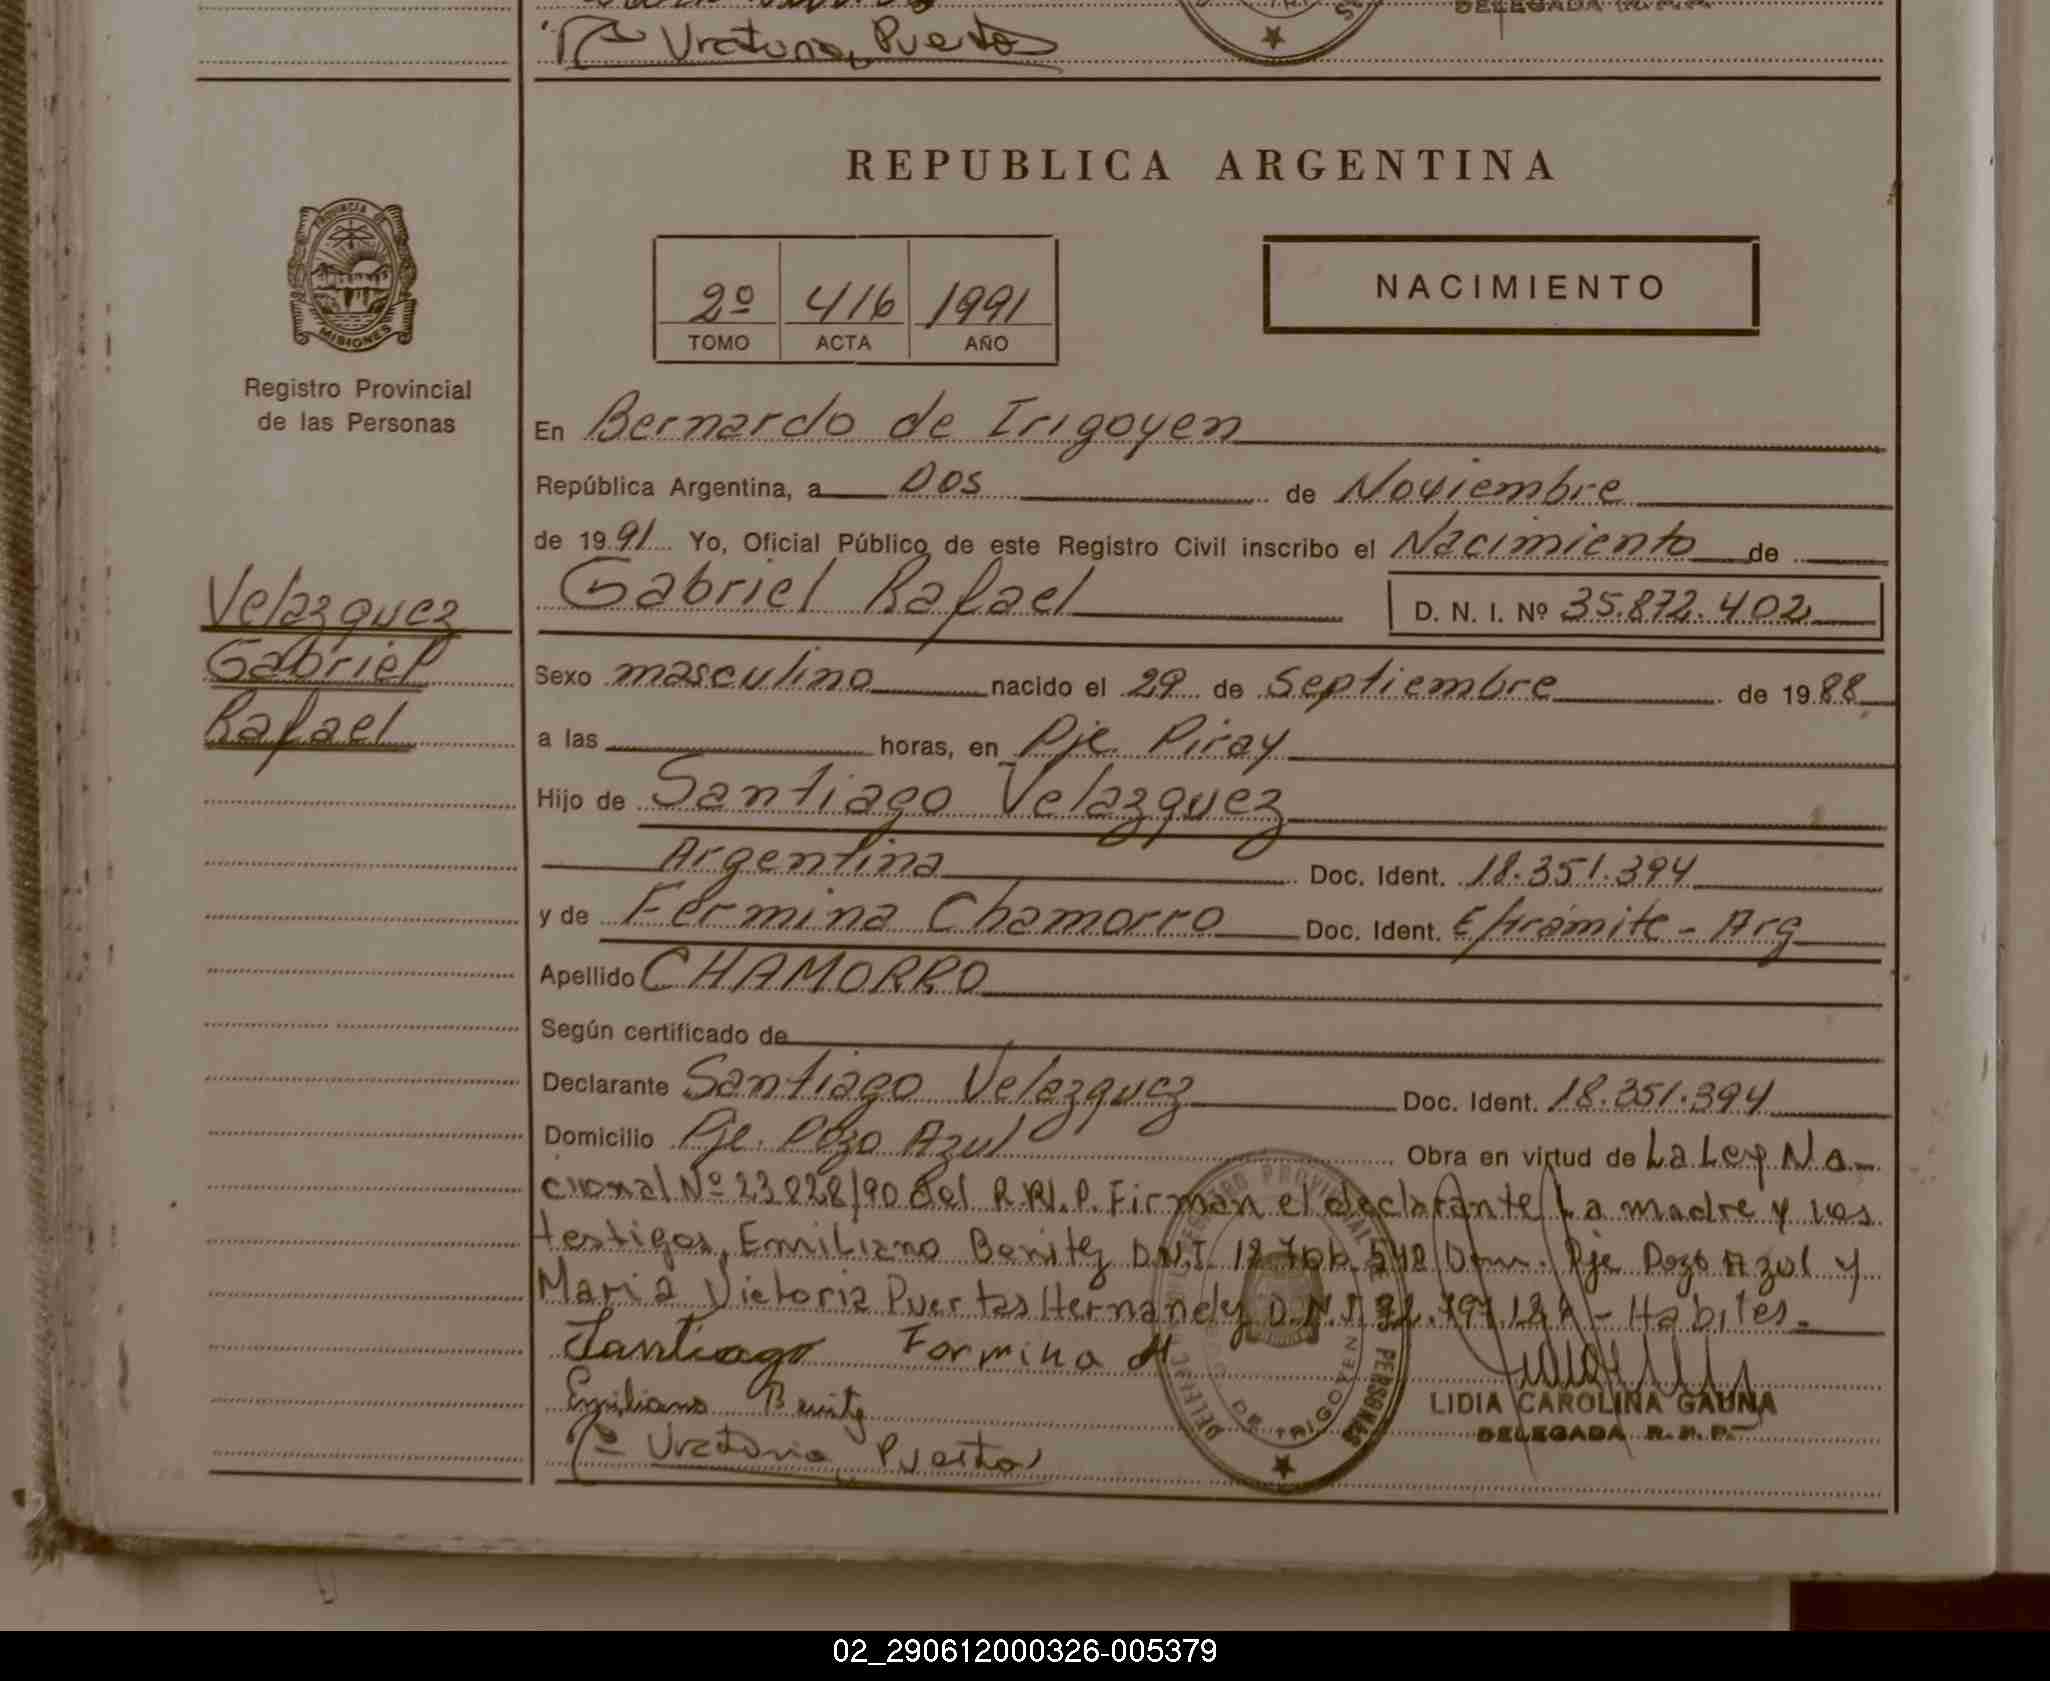 Puertas
REPUBLICA ARGENTINA
PROVINCIA DE
MISIONES
Registro Provincial
de las Personas
2º 416 1991
TOMO ACTA AÑO
NACIMIENTO
En Bernardo de Irigoyen
República Argentina, a Dos de Noviembre
de 1991 Yo, Oficial Público de este Registro Civil inscribo el Nacimiento de
Gabriel Rafael D. N. I. Nº 35.872.402
Velazquez
Gabriel
Rafael
Sexo masculino nacido el 29 de Septiembre de 1988
a las horas, en Pje Piray
Hijo de Santiago Velazquez
Argentina Doc. Ident. 18.351.394
y de Fermina Chamorro Doc. Ident. E/tramite - Arg
Apellido CHAMORRO
Según certificado de
Declarante Santiago Velazquez Doc. Ident. 18.351.394
Domicilio Pje. Pozo Azul Obra en virtud de La Ley Na-
cional Nº 23.828/90 del Firman el declarante La madre y los
testigos, Emiliano Benitez D.N.I. Dom. Pje Pozo Azul y
Maria Victoria Puertas Hernandez D.N.I. - Habiles.
Santiago Formina
Emiliano Benitz
Puertas
DE IRIGOYEN
LIDIA CAROLINA GAUNA
DELEGADA R.P.P.
02_290612000326-005379